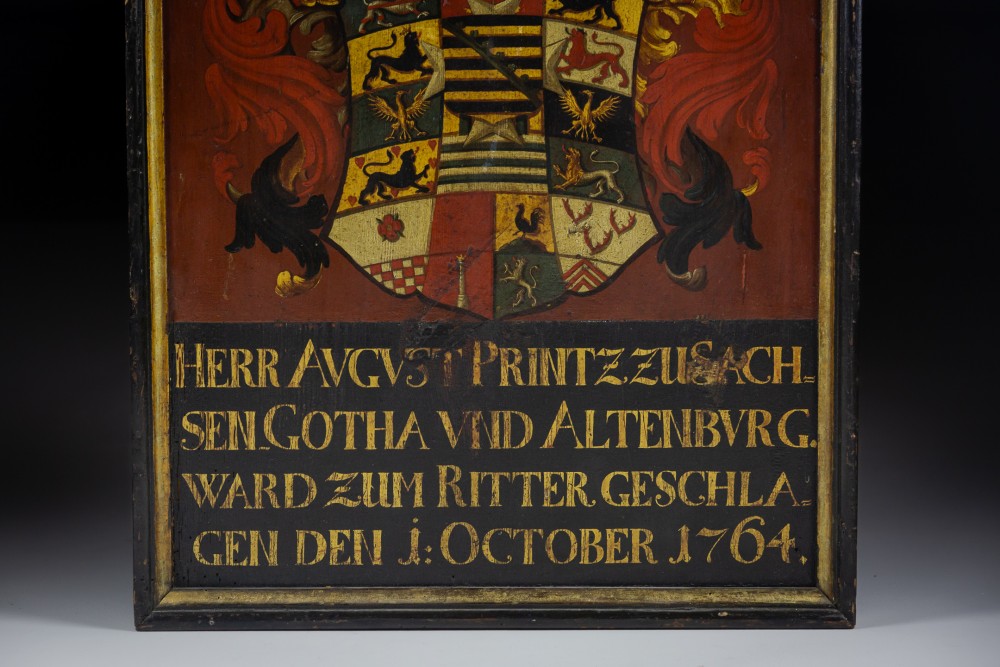 HERR AVGVST PRINTZ ZU SACH-
SEN.GOTHA VND ALTENBVRG.
WARD ZUM RITTER GESCHLA-
GEN DEN 1: OCTOBER 1764.